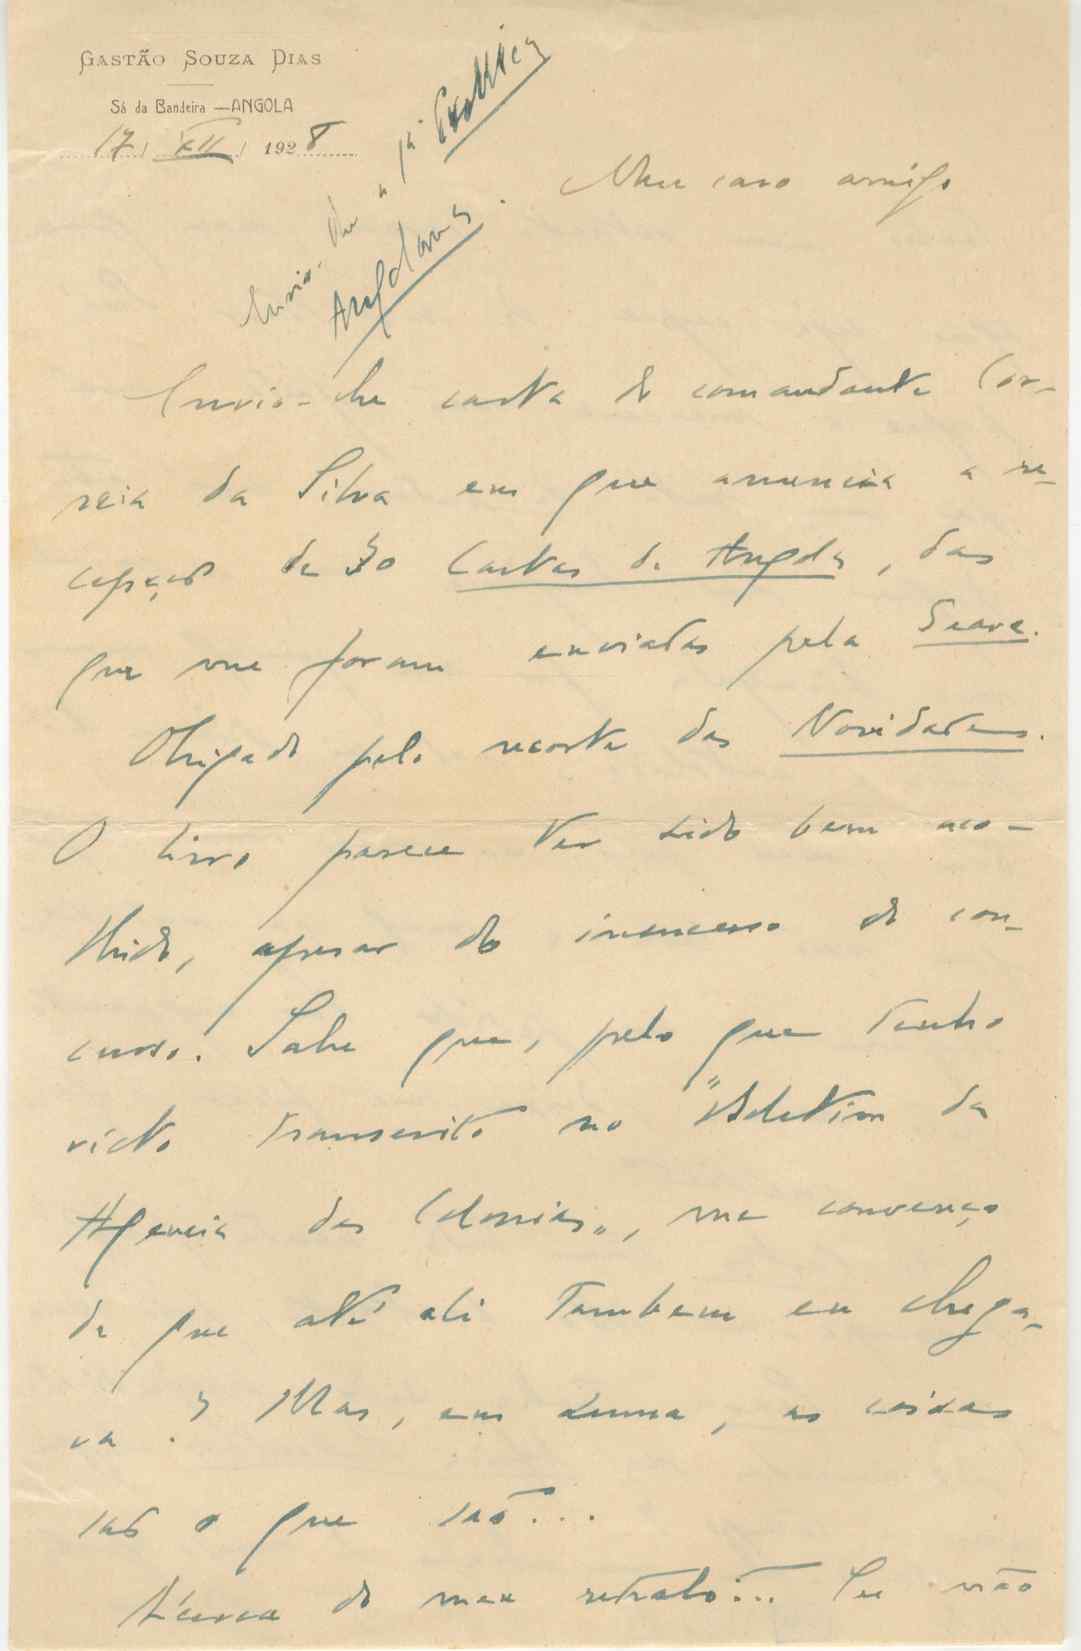 GASTÃO SOUZA DIAS
Sá da Bandeira — ANGOLA
17 / XII / 1928
Envio-lhe a
Angolana.
Meu caro amigo
Envio-lhe carta do comandante Cor-
reia da Silva em que anuncia a re-
cepção de 30 Cartas de Angola, das
que me foram enviadas pela Seara.
Obrigado pelo recorte das Novidades.
O livro parece ter sido bem aco-
lhido, apesar do insucesso do con-
curso. Sabe que, pelo que tenho
visto transcrito no "Boletim da
Agencia das Colonias„, me convenço
de que até ali tambem eu chega-
va? Mas, em suma, as coisas
são o que são...
Ácerca do meu retrato... Eu não